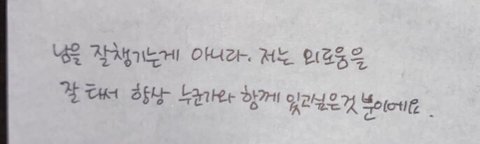 남을 잘챙기는게 아니라. 저는 외로움을
잘 타서 항상 누군가와 함께 있고싶은것 뿐이에요.